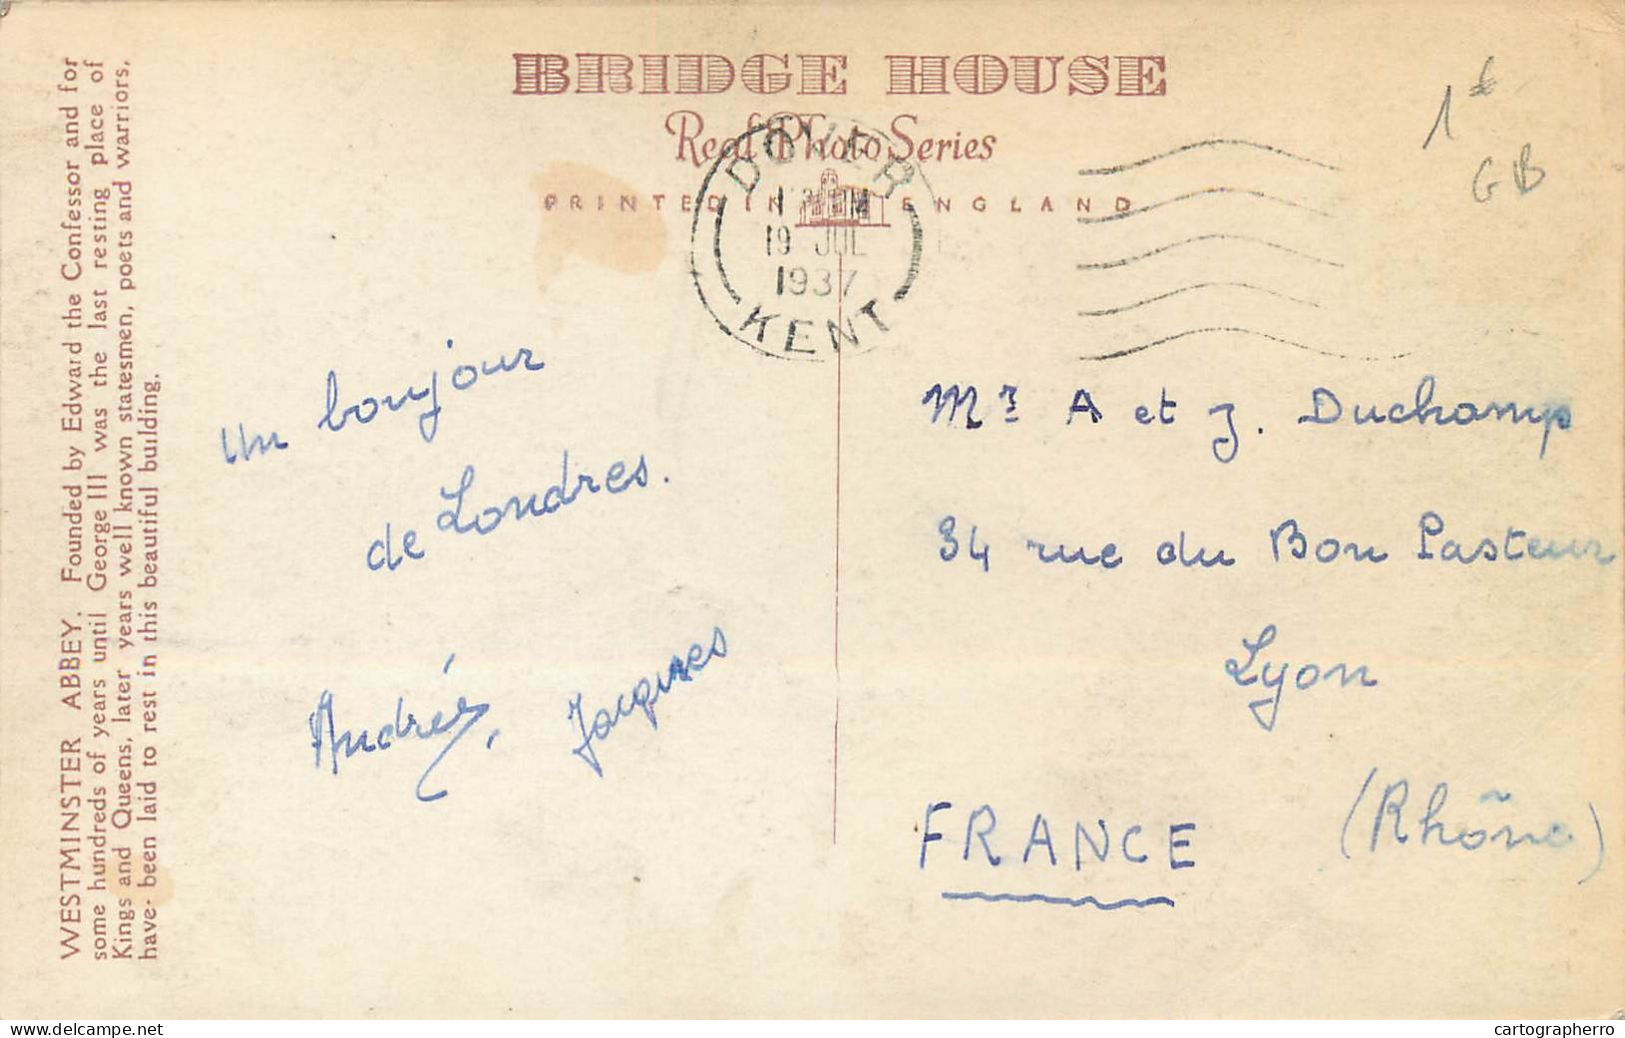 BRIDGE HOUSE
Real Photo Series
PRINTED IN ENGLAND
DOVER
19 JUL
1937
KENT
1£
GB
WESTMINSTER ABBEY. Founded by Edward the Confessor and for
some hundreds of years until George III was the last resting place of
Kings and Queens, later years well known statesmen, poets and warriors,
have- been laid to rest in this beautiful building.
un bonjour
de Londres.
Andrée, Jacques
Mr A et J. Duchamp
34 rue du Bon Pasteur
Lyon
(Rhône)
FRANCE
delcampe.net
cartographerro